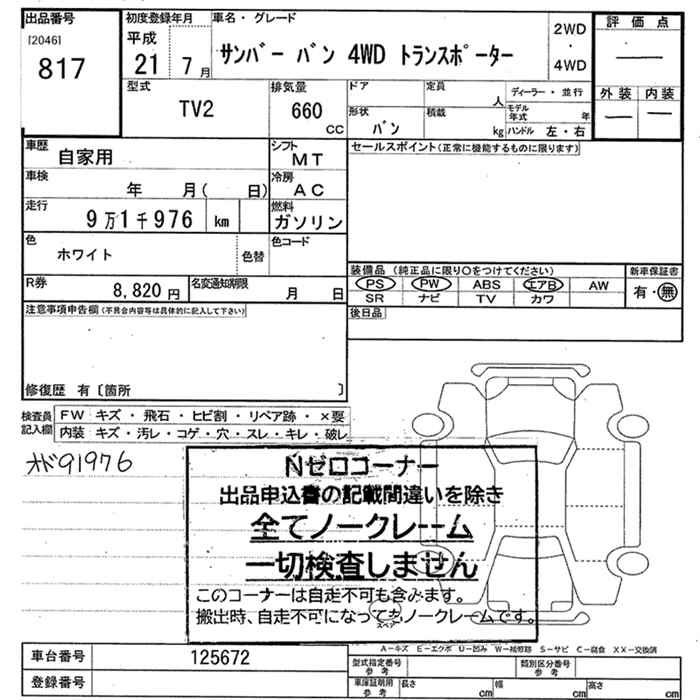 出品番号
[2046]
817
初度登録年月
平成
21 7 月
車名・グレード
サンバー バン 4WD トランスポーター
2WD
・
4WD
評価点
―
外装 内装
― ―
型式
TV2
排気量
660
CC
ドア
定員
人
形状
バン
積載
kg
ディーラー・並行
モデル年式
年
ハンドル 左・右
車歴
自家用
シフト
MT
車検
年 月( 日)
冷房
AC
走行
9万1千976 km
燃料
ガソリン
色
ホワイト
色替
色コード
R券
8,820円
名変通知期限
月 日
セールスポイント(正常に機能するものに限ります)
装備品 (純正品に限り○をつけてください)
PS PW ABS エアB AW
SR ナビ TV カワ
新車保証書
有・無
後日品
注意事項申告欄(不具合内容等は具体的に記入して下さい)
修復歴 有〔箇所 〕
検査員記入欄
FW キズ・飛石・ヒビ割・リペア跡・×要
内装 キズ・汚レ・コゲ・穴・スレ・キレ・破レ
オド91976
Nゼロコーナー
出品申込書の記載間違いを除き
全てノークレーム
一切検査しません
このコーナーは自走不可も含みます。
搬出時、自走不可になってもノークレームです。
スペア
A-キズ E-エクボ U-凹み W-補修跡 S-サビ C-腐食 XX-交換済
車台番号
125672
登録番号
型式指定番号
参考
類別区分番号
参考
車庫証明用
参考
長さ
cm
幅
cm
高さ
cm